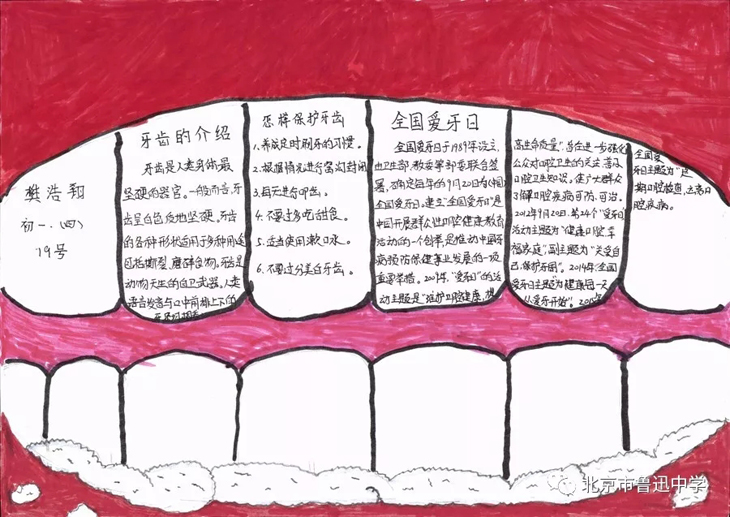 樊浩翔
初一.(四)
19号
牙齿的介绍
牙齿是人类身体最
坚硬的器官。一般而言牙
齿呈白色质地坚硬。牙齿
的各种形状适用于多种用途
包括撕裂、磨碎食物。牙齿是
动物天生的自卫武器。人类
语言发音与口中前排上下的
怎样保护牙齿
1.养成定时刷牙的习惯。
2.根据情况进行窝沟封闭
3.每天进行叩齿。
4.不要多吃甜食。
5.适当使用漱口水。
6.不要过分美白牙齿。
全国爱牙日
全国爱牙日于1989年设立,
由卫生部、教委等部委联合签
署,确定每年的9月20日为中国
全国爱牙日。建立"全国爱牙日"是
中国开展群众性口腔健康教育
活动的一个创举,是推动中国牙
病预防保健事业发展的一项
重要举措。2009年,"爱牙日"的活
动主题是"维护口腔健康,提
高生命质量"。旨在进一步强化
公众对口腔卫生的关注,普及
口腔卫生知识。使广大群众
了解口腔疾病可防、可治。
2012年9月20日,第24个"爱牙日"
活动主题为"健康口腔,幸
福家庭",副主题为"关爱自
己,保护牙周"。2014年,全国
爱牙日主题为"健康每一天
从爱牙开始"。2015年
全国爱
牙日主题为"定
期口腔检查,远离口
腔疾病。
北京市鲁迅中学